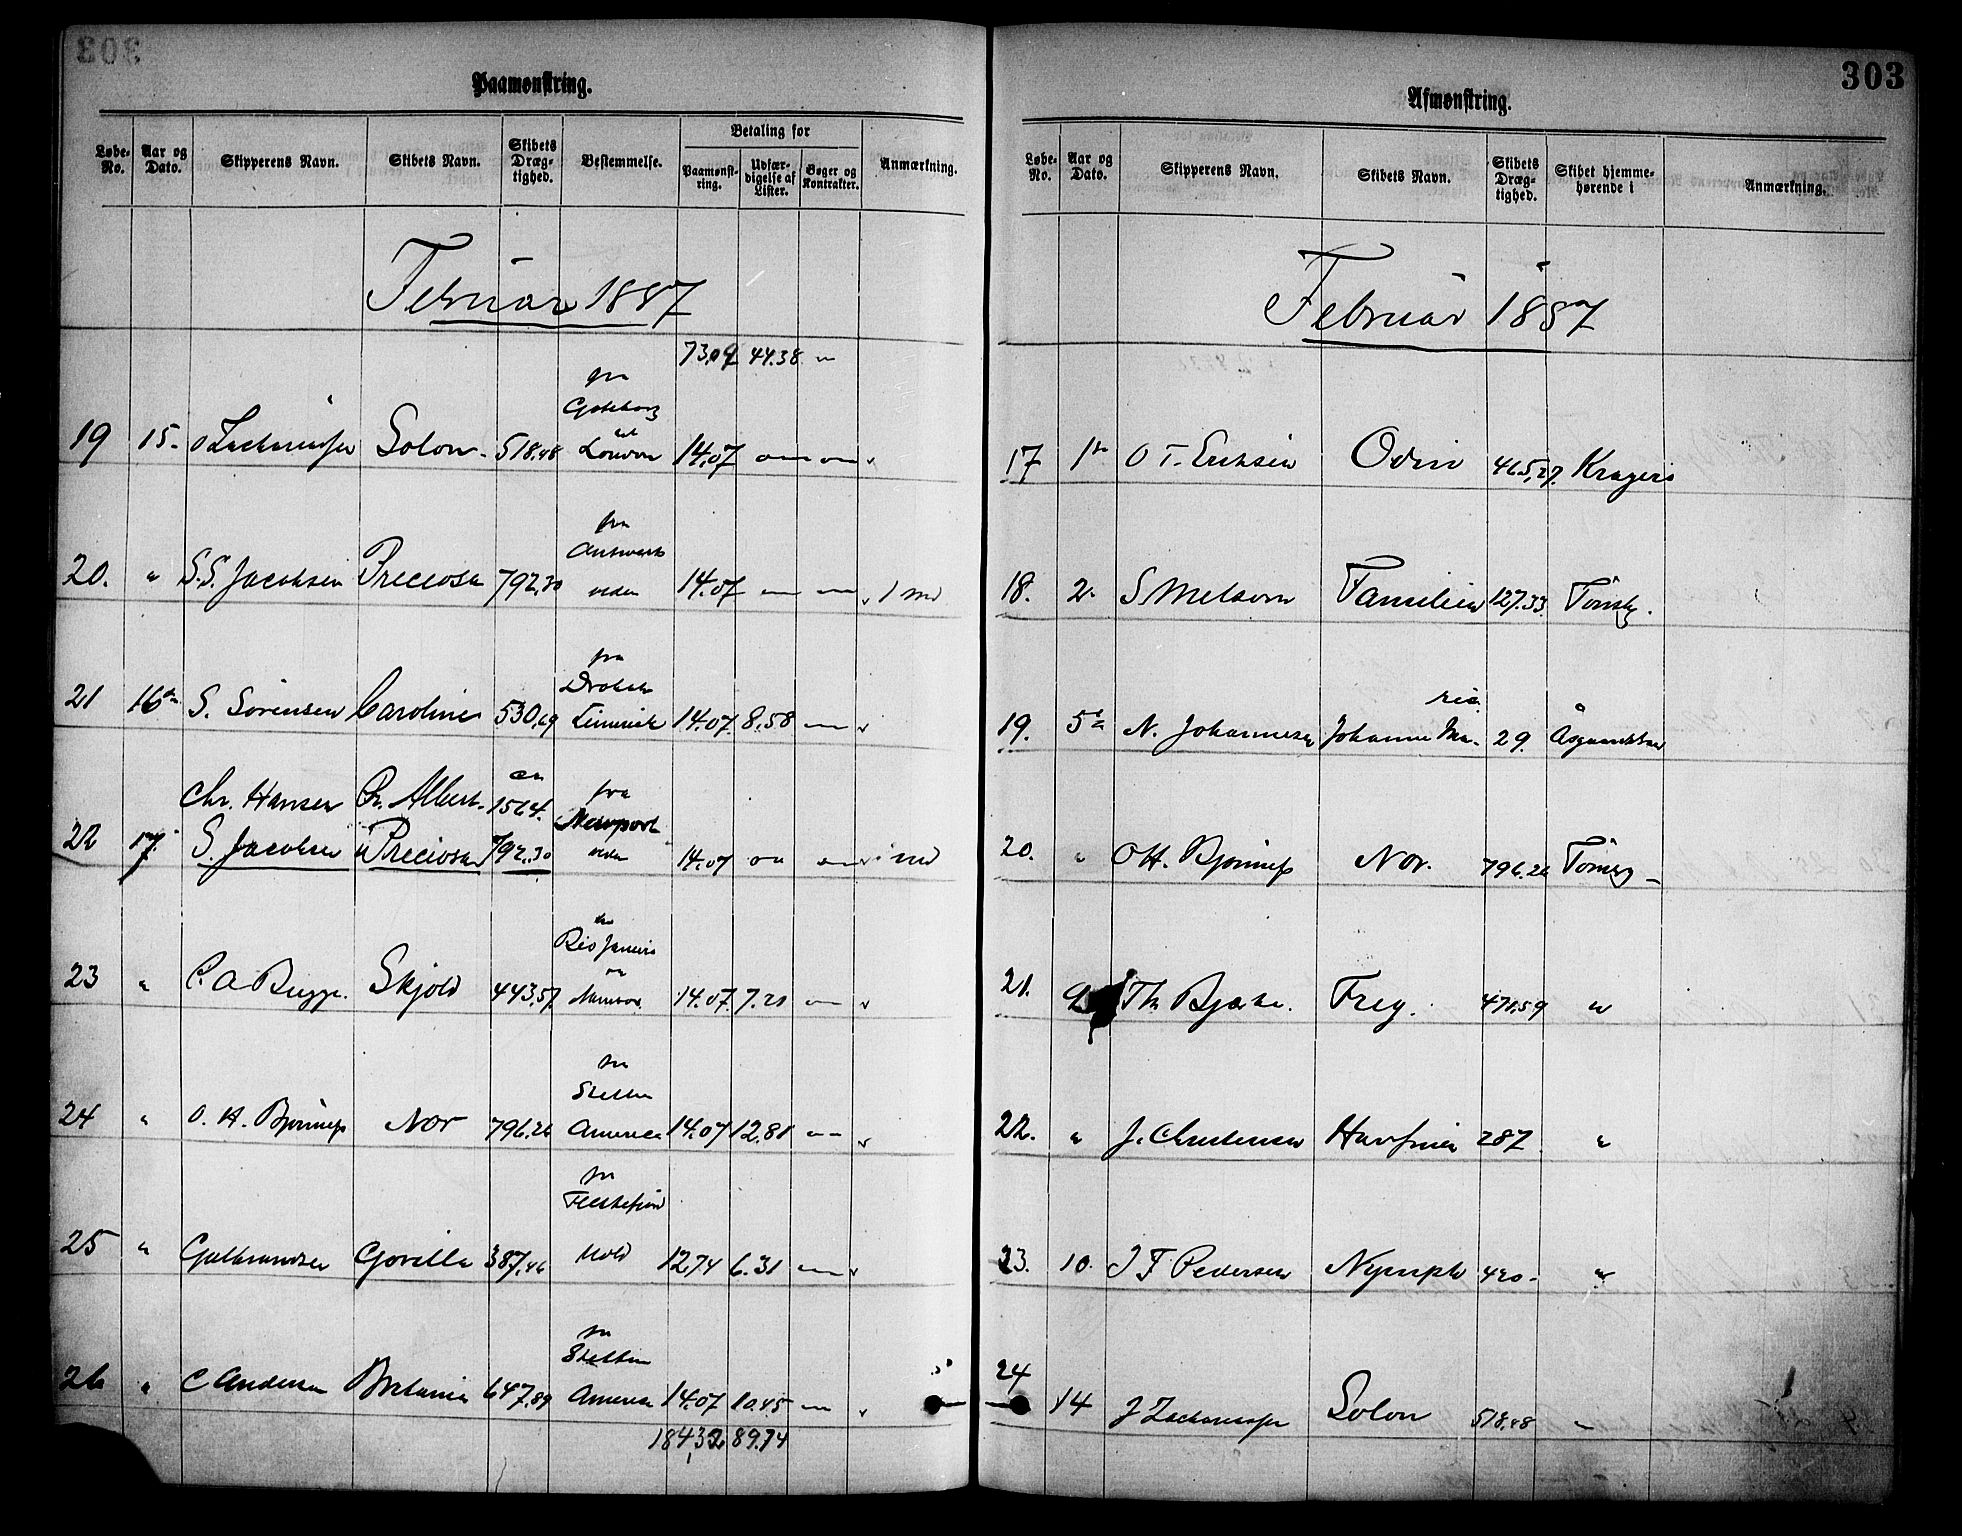 303
Paamønstring.
Løbe-No. Aar og Dato. Skipperens Navn. Skibets Navn. Skibets Dræg-tighed. Bestemmelse. Betaling for Paamønst-ring. Udfær-digelse af Lister. Bøger og Kontrakter. Anmærkning.
Februar 1887
73,09 44.38 "
fra
Gøteborg
til
19 15- Solon 518,48 London 14,07
fra
20. " S.S. Jacobsen Preciosa 792,30 14.07 1 md
fra
Drøbak
21 16de S. Sørensen Caroline 530,69 Limerick 14.07 8.58
Chr. Hansen Chr. Albert 1564. fra
Newport
22 17. S. Jacobsen Preciosa 792,30 14.07 1 md
Rio Janeiro
23 " C. A Bugge. Skjold 443,57. 14.07 7.21
fra
Stettin
24 " O. H. Bjønness Nor 796,26 America 14.07 12.81
fra
25 " Gulbrandsen Gorilla 387,46 12,74 6.31
fra
Stettin
26 " C Andersen Britania 647,89 America 14.07 10.45
184,32 89.74
303
Afmønstring.
Løbe-No. Aar og Dato. Skipperens Navn. Skibets Navn. Skibets Dræg-tighed. Skibet hjemme-hørende i Anmærkning.
Februar 1887
17 1ste O T. Eriksen Odin 465,27. Kragerø
18. 2. S Melsom Familien 127.33. Tønsbg.
rie.
19. 5te N. Johannesen Johanne Ma- 29. Åsgaardstrand
20. " O H. Bjønness Nor. 796.26 Tønsbg
21. 9 Th Bjerke. Frey. 471,59 "
22. " J. Christensen Havfruen 287. "
23. 10. J F Pedersen Nymph 420- "
24 14 J Zachariassen Solon 518,48 "